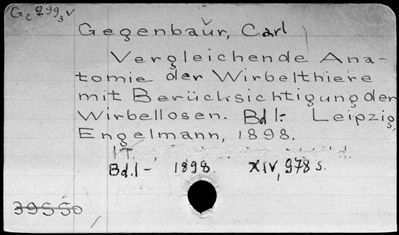 Gegenbaŭr, Carl
Vergleichende Ana-
tomie der Wirbelthiere
mit Berücksichtigung der
Wirbellosen. Bd I- Leipzig,
Engelmann, 1898.
Bd. I- 1898. XIV, 978 s.
39550